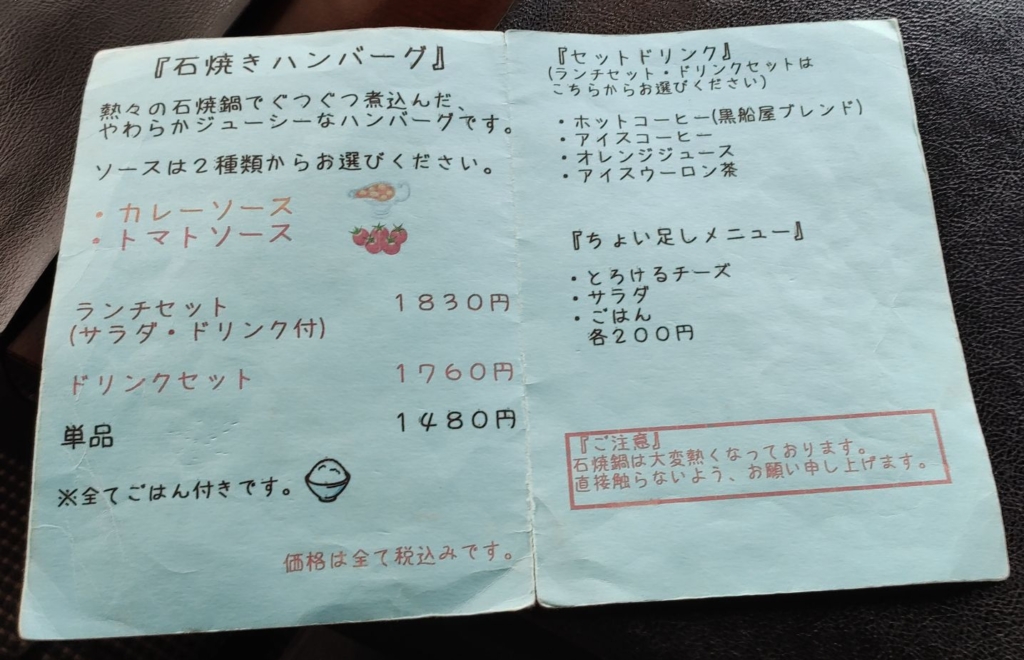 『石焼きハンバーグ』
熱々の石焼鍋でぐつぐつ煮込んだ、
やわらかジューシーなハンバーグです。
ソースは２種類からお選びください。
・カレーソース
・トマトソース
ランチセット １８３０円
(サラダ・ドリンク付)
ドリンクセット １７６０円
単品 １４８０円
※全てごはん付きです。
価格は全て税込みです。
『セットドリンク』
(ランチセット・ドリンクセットは
こちらからお選びください)
・ホットコーヒー(黒船屋ブレンド)
・アイスコーヒー
・オレンジジュース
・アイスウーロン茶
『ちょい足しメニュー』
・とろけるチーズ
・サラダ
・ごはん
各２００円
『ご注意』
石焼鍋は大変熱くなっております。
直接触らないよう、お願い申し上げます。